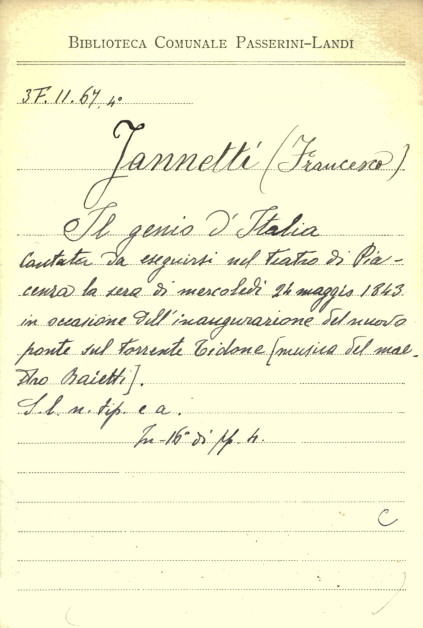 BIBLIOTECA COMUNALE PASSERINI-LANDI
3F.11.67.4º
Jannetti (Francesco)
Il genio d'Italia
Cantata da eseguirsi nel teatro di Pia-
cenza la sera di mercoledì 24 maggio 1843
in occasione dell'inaugurazione del nuovo
ponte sul torrente Tidone [musica del mae-
stro Baietti].
S. l. n. tip. e a.
In-16º di pp. 4.
C